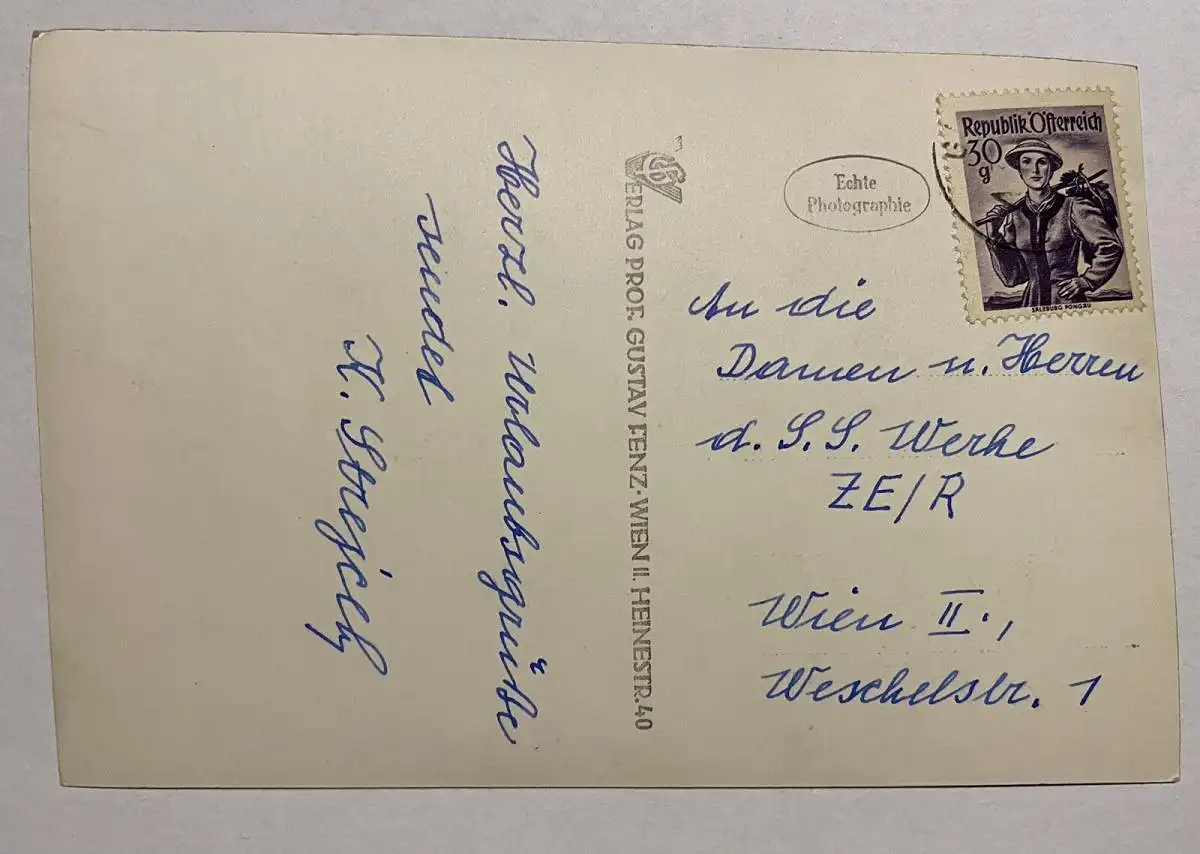 Herzl. Urlaubsgrüße
sendet
K. Strejcek
VERLAG PROF. GUSTAV FENZ·WIEN II. HEINESTR.40
Echte
Photographie
Republik Österreich
30
g
SALZBURG PONGAU
An die
Damen u. Herren
d. S. S. Werke
ZE/R
Wien II.,
Weschelstr. 1